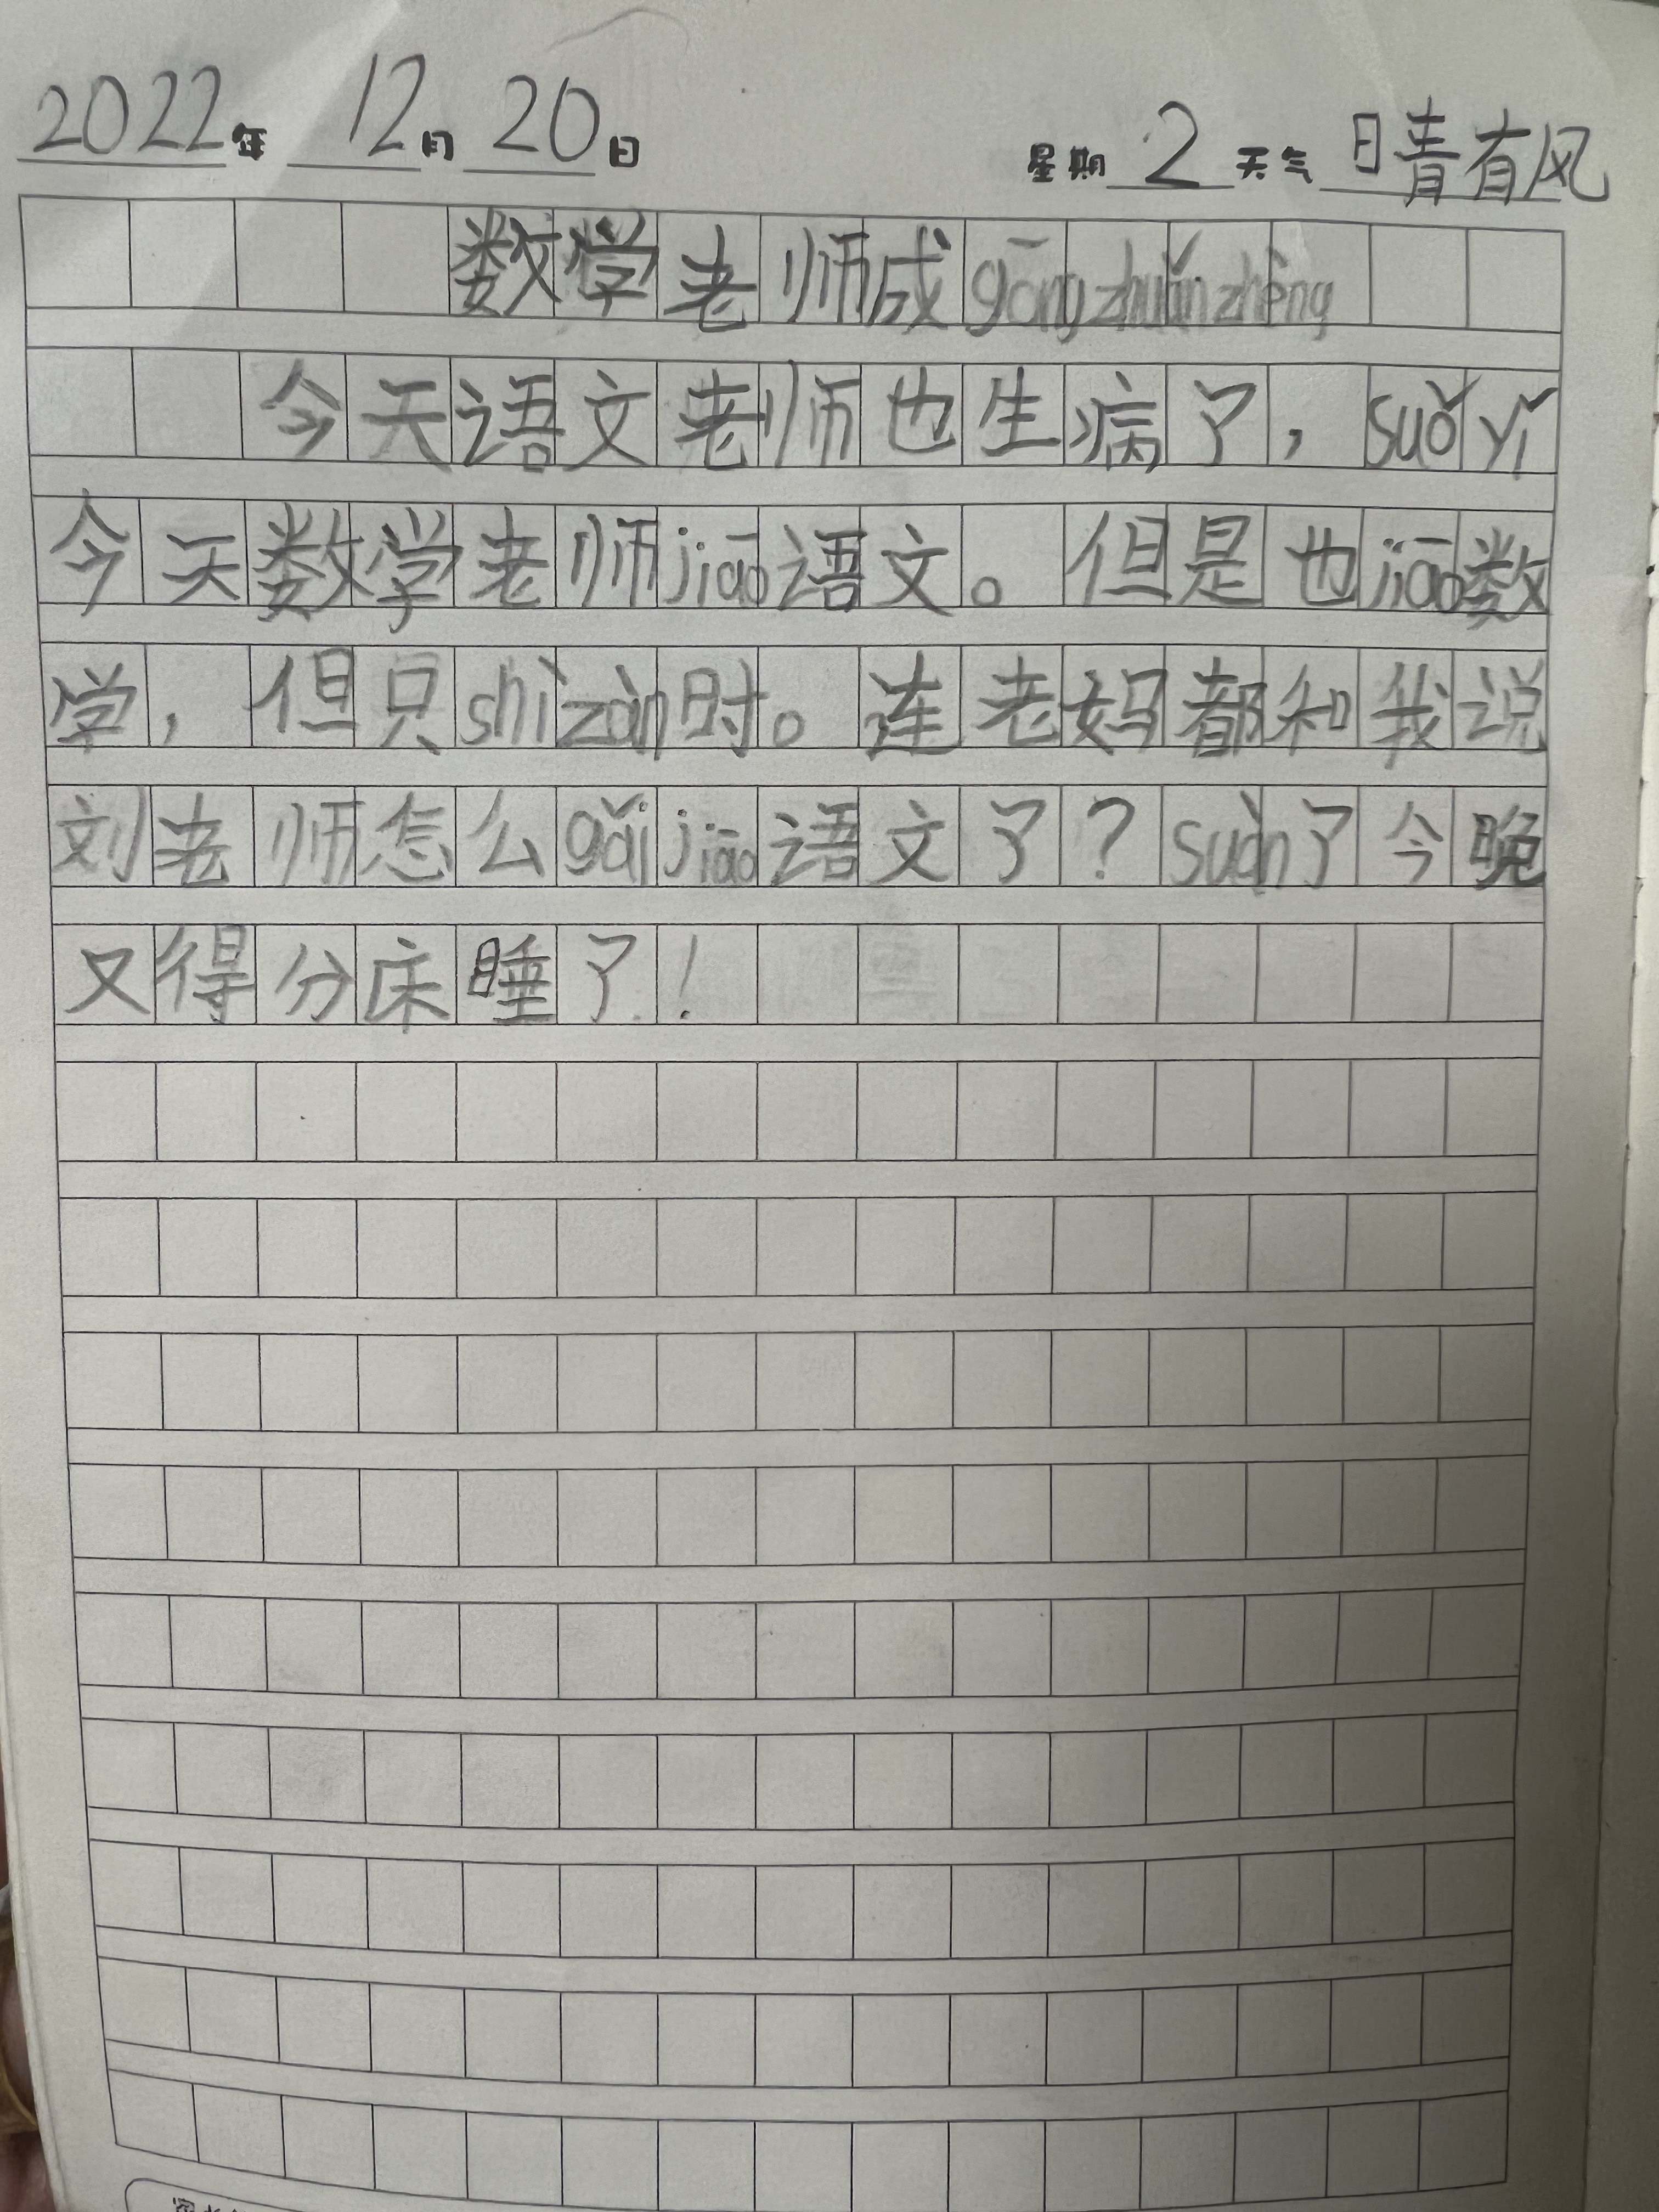 2022年 12月 20日 星期 2 天气 晴有风
数学老师成gōngzhuǎnzhèng
今天语文老师也生病了，suǒyǐ
今天数学老师jiāo语文。但是也jiāo数
学，但只shìzàn时。连老妈都和我说
刘老师怎么gǎijiāo语文了？suàn了今晚
又得分床睡了！